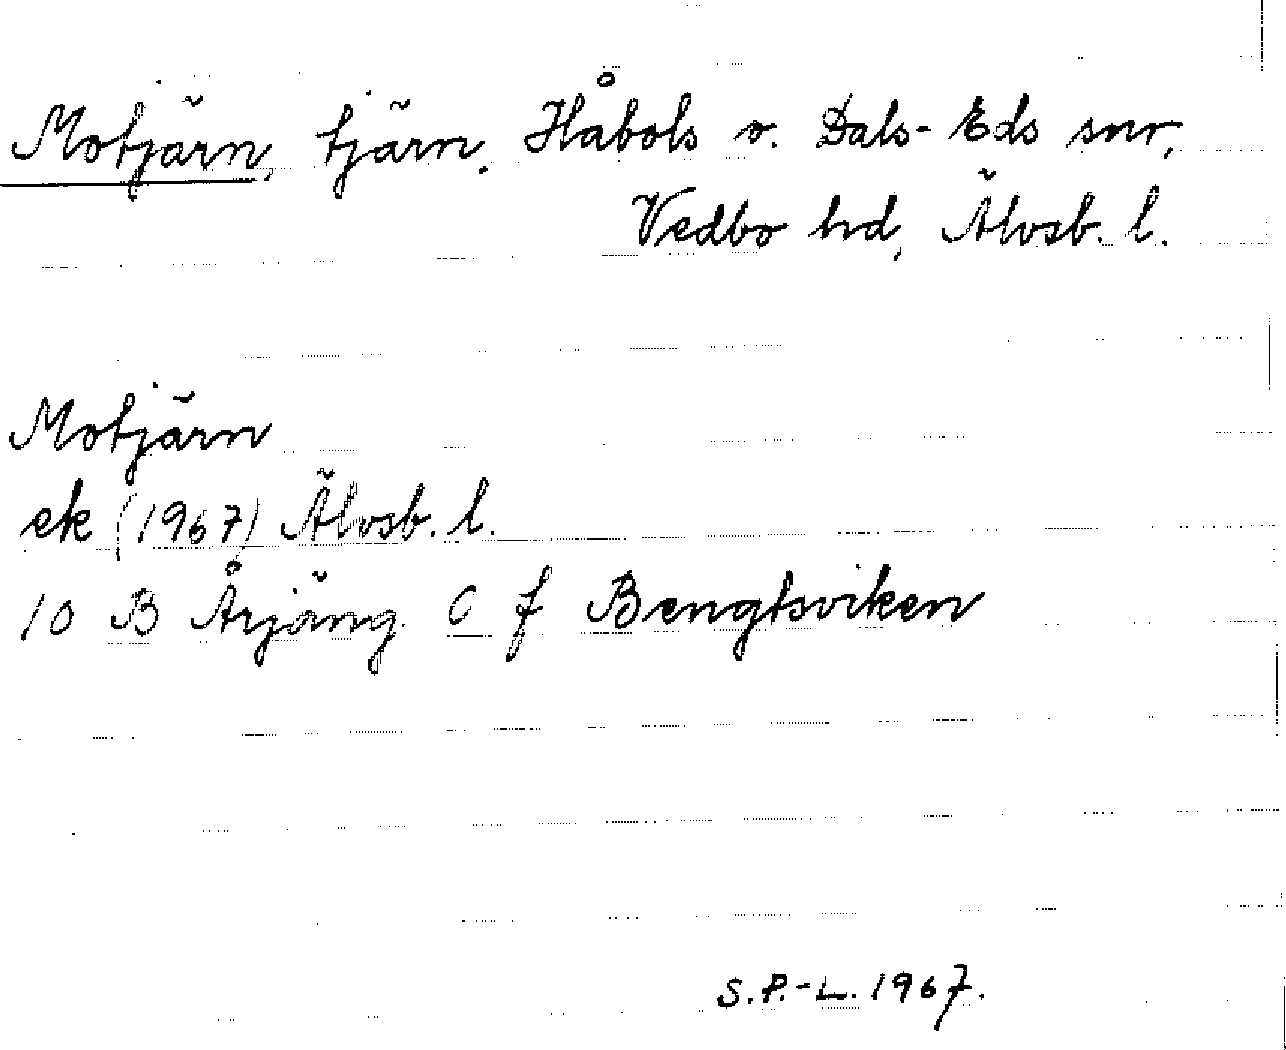 Motjärn, tjärn. Håbols o. Dals-Eds snr,
Vedbo hd, Älvsb. l.
Motjärn
ek (1967) Älvsb. l.
10 B Årjäng C f Bengtsviken
S.P.-L. 1967.